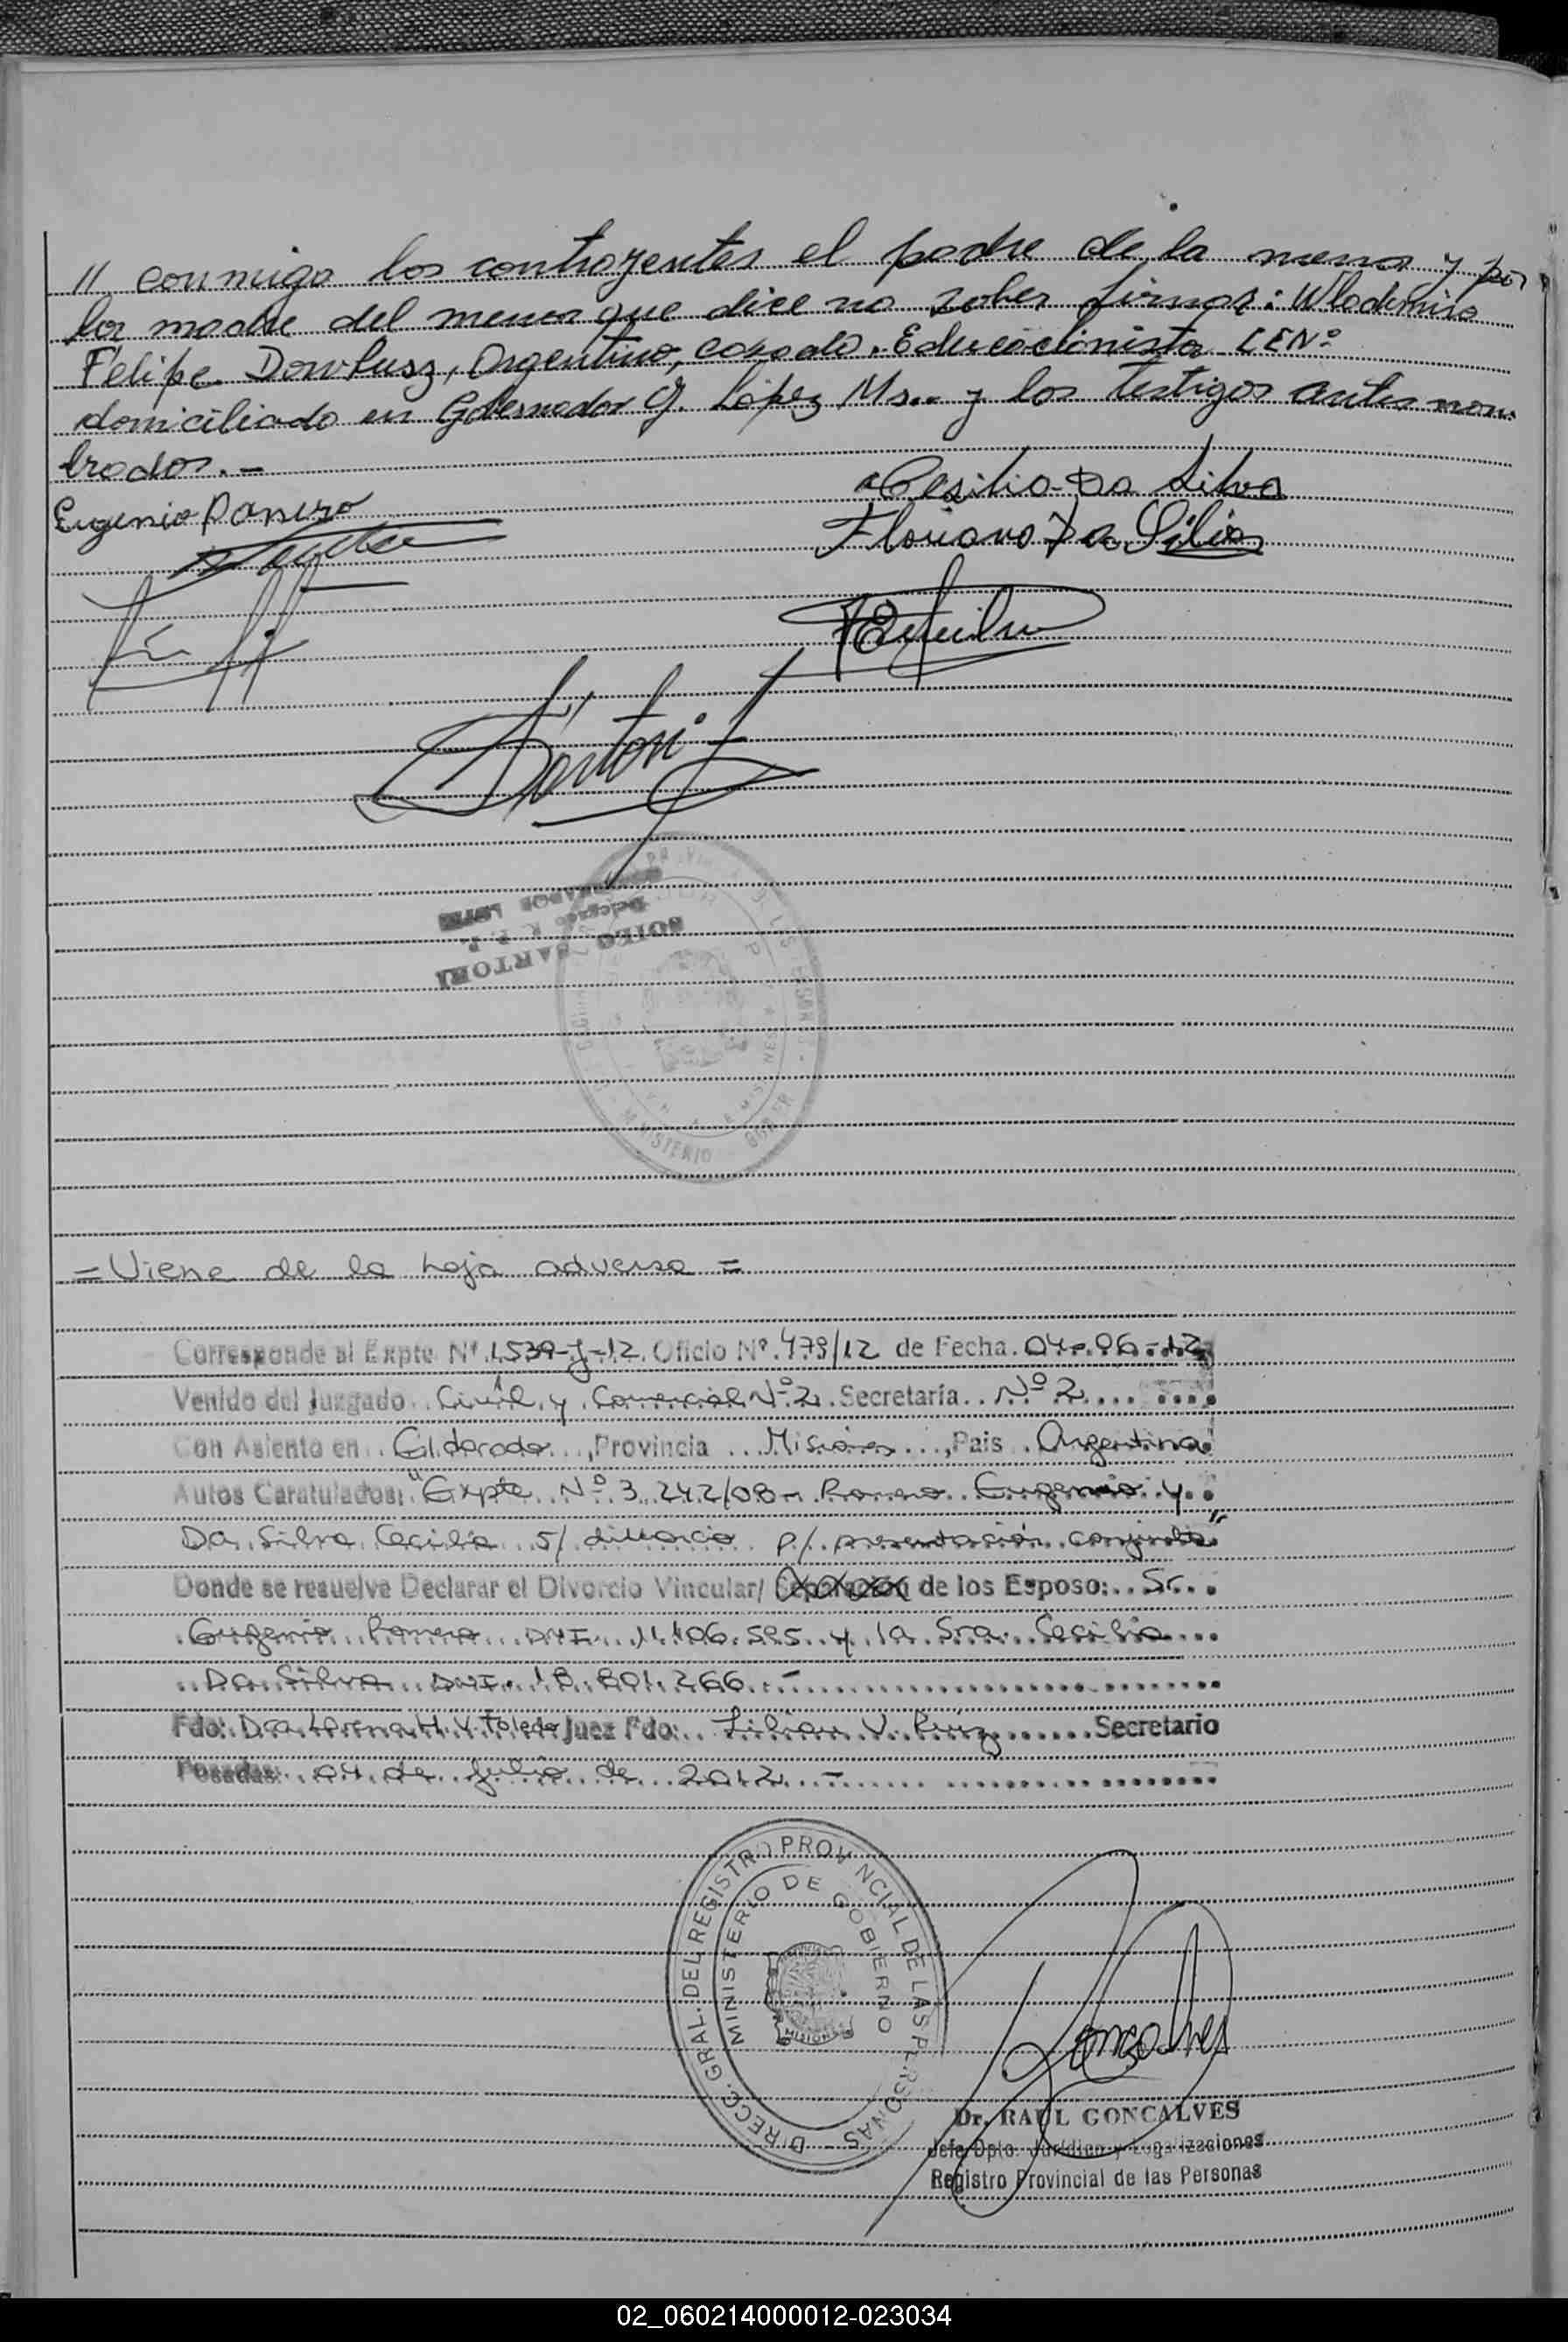 // conmigo los contrayentes el padre de la menor y por
la madre del menor que dice no saber firmar: Wlademiro
Felipe Dowhusz, Argentino, casado. Educacionista LENº
domiciliado en Gobernador J. López Ms.. y los testigos antes nom-
brados.-
Cesilia Da Silva
Eugenio Romero
Floriano Da Silva
Sartori
SOTEO SARTORI
Delegado R. P. P.
GOBERNADOR LOPEZ
MINISTERIO
= Viene de la hoja adversa =
Corresponde al Expte Nº 1539-J-12. Oficio Nº 479/12 de Fecha 04-06-12
Venido del Juzgado Civil y Comercial Nº 2. Secretaría Nº 2
Con Asiento en Eldorado, Provincia Misiones, Pais Argentina
Autos Caratulados: "Expte Nº 3.242/08 - Romero Eugenio y
Da Silva Cecilia s/ divorcio p/ presentación conjunta"
Donde se resuelve Declarar el Divorcio Vincular/ Separación de los Esposo: Sr.
Eugenio Romero DNI. 11.406.595 y la Sra. Cecilia
Da Silva DNI. 18.801.266.-
Fdo: Dra. Lorena H. V. Toledo Juez Fdo: Lilian V. Ruiz Secretario
Posadas: 04 de Julio de 2012.-
DIRECC. GRAL. DEL REGISTRO PROVINCIAL DE LAS PERSONAS
MINISTERIO DE GOBIERNO
MISIONES
Goncalves
Dr. RAUL GONCALVES
Jefe Dpto. Jurídico y Legalizaciones
Registro Provincial de las Personas
02_060214000012-023034